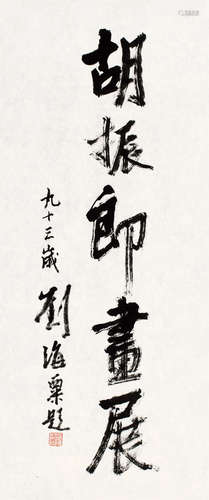 胡振郎畫展
九十三歲
劉海粟題